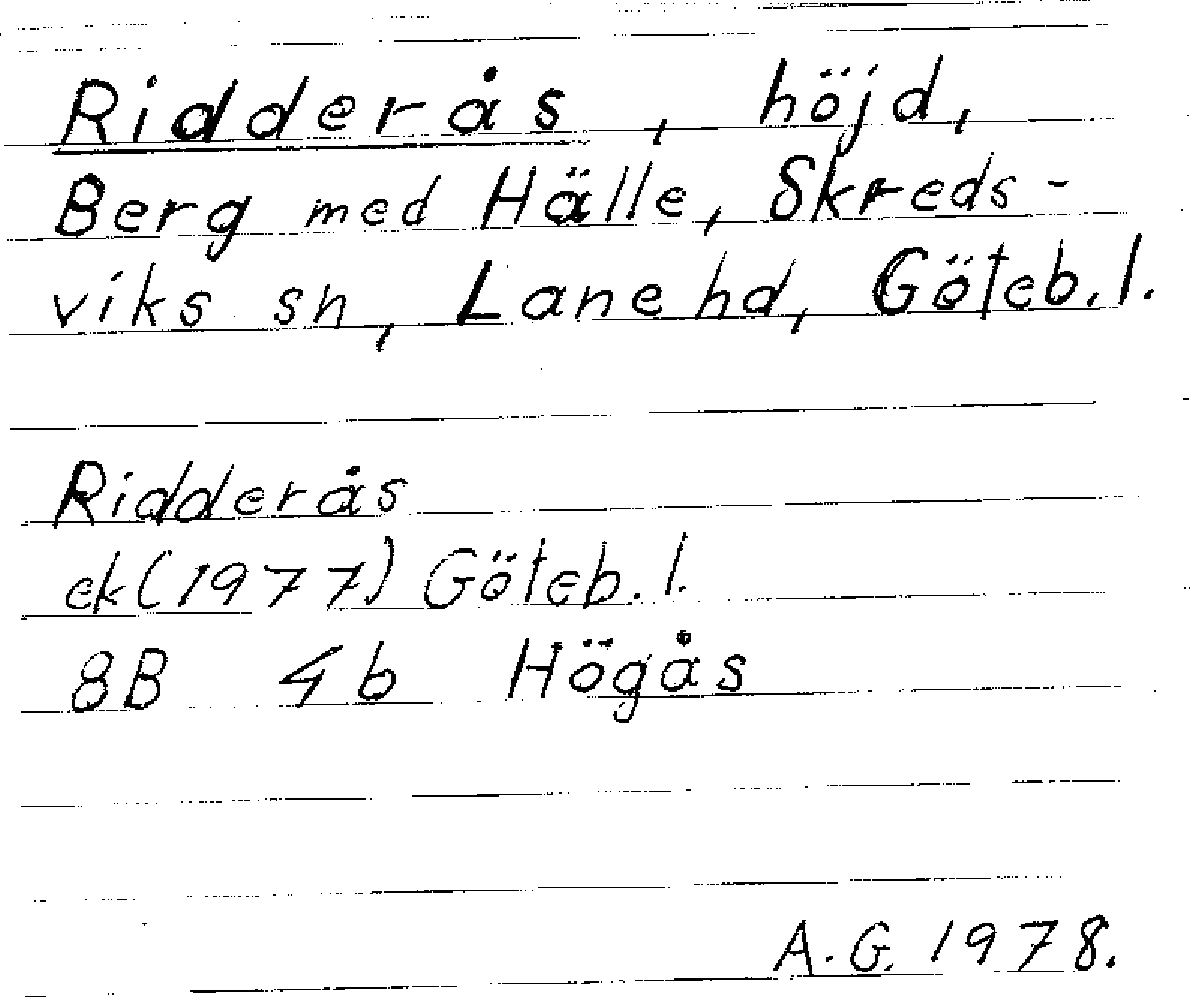 Ridderås, höjd,
Berg med Hälle, Skreds-
viks sn, Lane hd, Göteb. l.
Ridderås
ek (1977) Göteb. l.
8B 4b Högås
A.G. 1978.